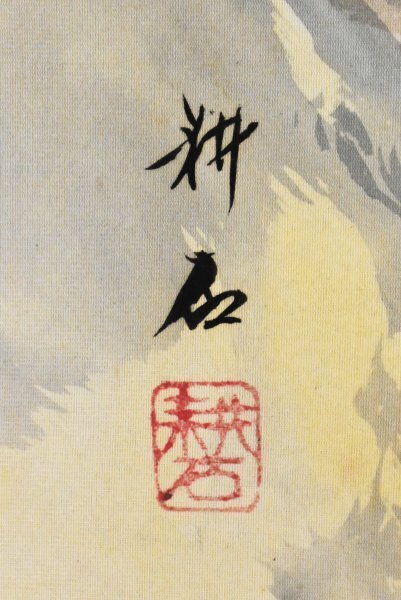 耕
石
耕石